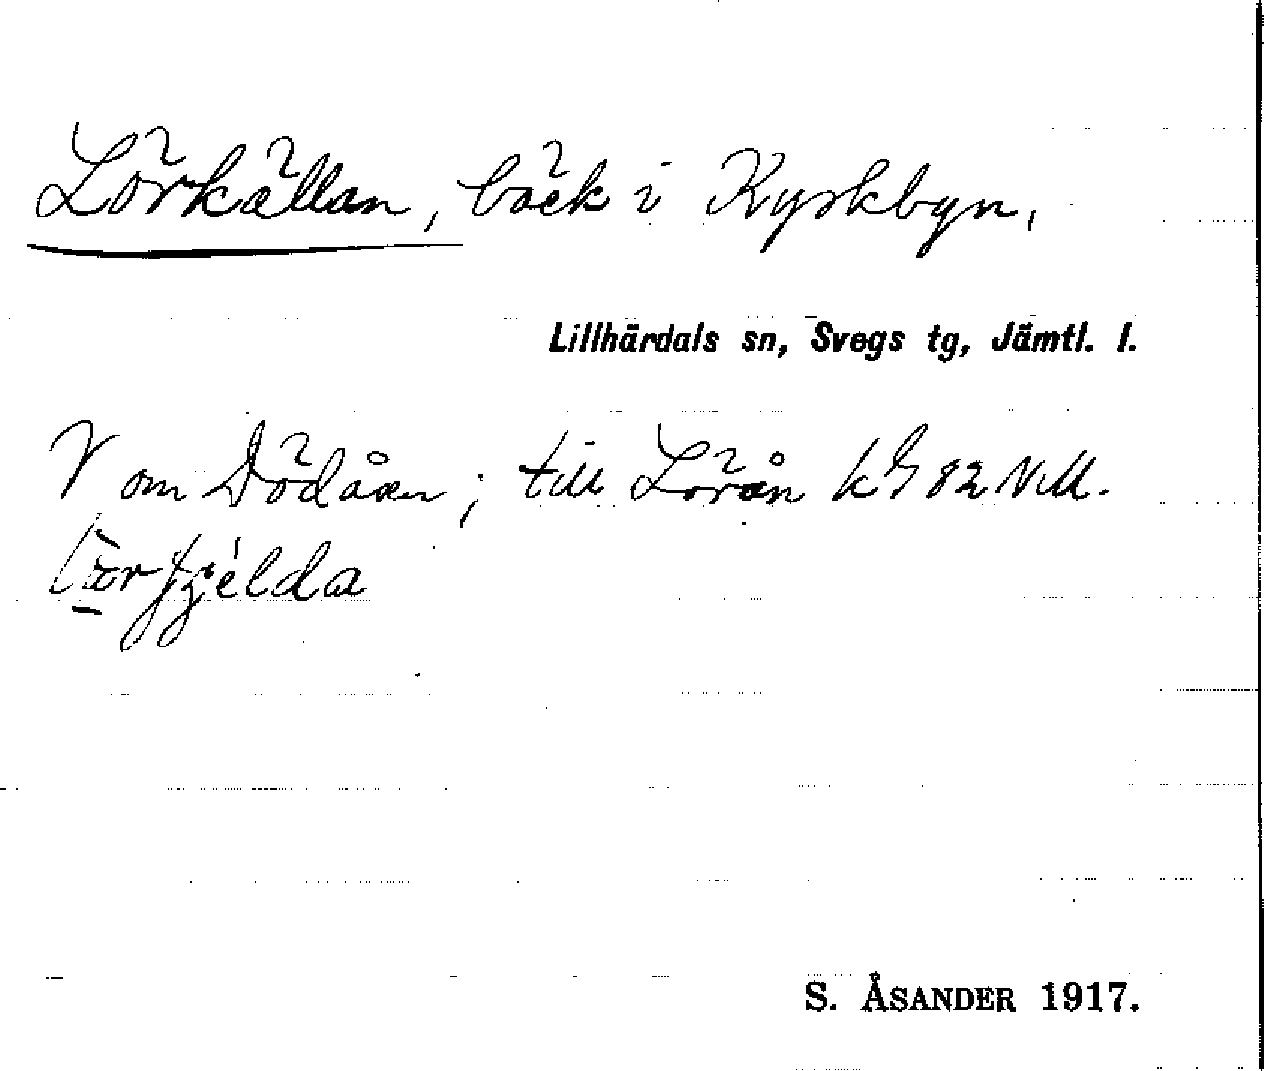 Lörkällan, bäck i Kyrkbyn,
Lillhärdals sn, Svegs tg, Jämtl. l.
V om Dödåen; till Lörån kG 82 NM.
S. ÅSANDER 1917.